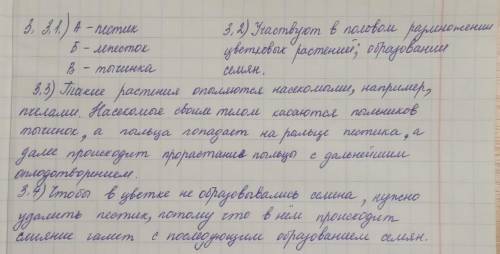 3. 3.1.) А - пестик 3.2) Участвуют в половом размножении
Б - лепесток цветковых растений; образовании
В - тычинка семян.
3.3) Такие растения опыляются насекомыми, например,
пчелами. Насекомые своим телом касаются пыльников
тычинок, а пыльца попадает на рыльце пестика, а
далее происходит прорастание пыльцы с дальнейшим
оплодотворением.
3.4) Чтобы в цветке не образовывались семена, нужно
удалить пестик, потому что в нём происходит
слияние гамет с последующим образованием семян.